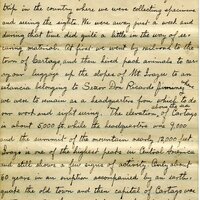 trip in the country where we were collecting specimens
and seeing the sights. We were away just a week and
during that time did quite a little in the way of se-
curing material. At first we went by railroad to the
town of Cartago, and then hired pack animals to car-
ry our luggage up the slopes of Mt Irazu to an
hacienda belonging to Señor Don Ricardo Jimenez
we were to remain as a headquarters from which to do
our work and sight seeing. The elevation, of Cartago
above the sea
is about 5,000 ft, while the headquarters was 9,000
and the summit of the mountain nearly 12,000 feet.
Irazu is one of the highest peaks in Central America
and still shows a few signs of activity. Only about
60 years in an eruption accompanied by an earth-
quake the old town and then capital of Cartago was